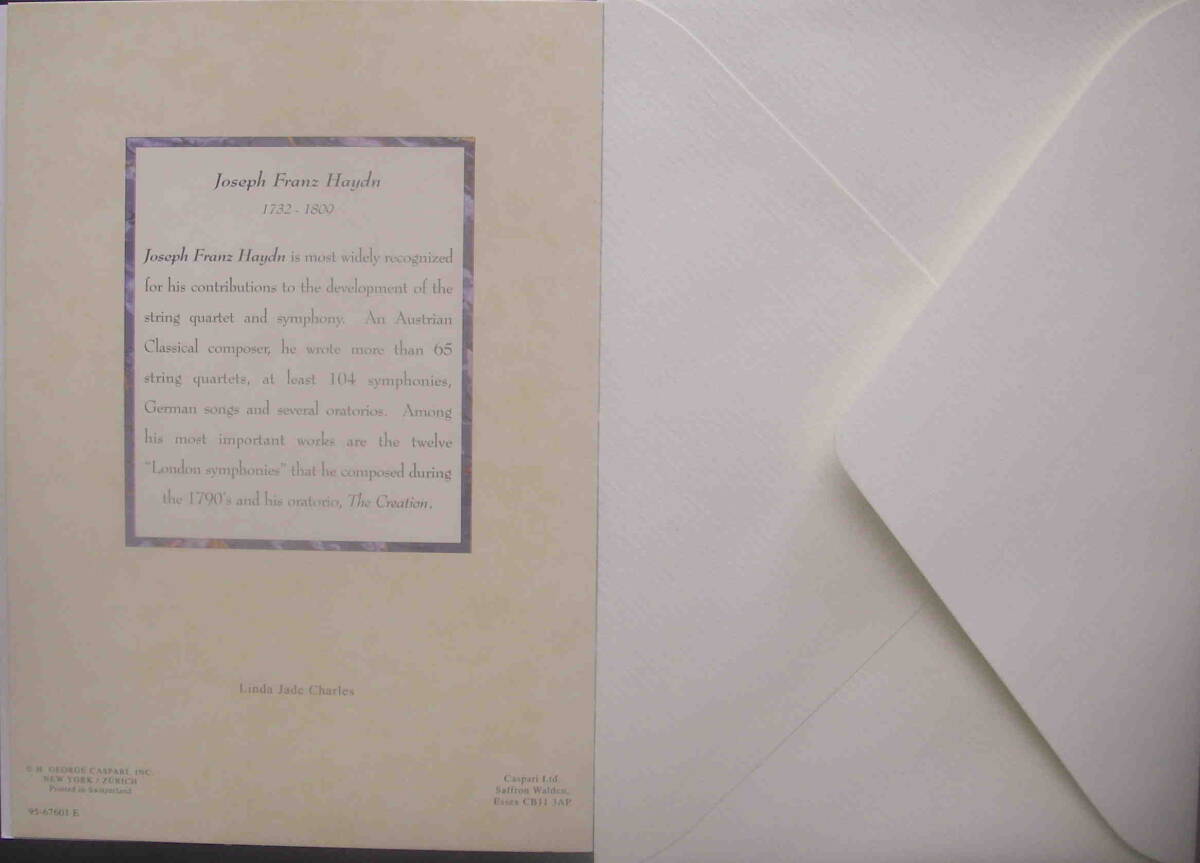 Joseph Franz Haydn
1732 - 1809
Joseph Franz Haydn is most widely recognized
for his contributions to the development of the
string quartet and symphony. An Austrian
Classical composer, he wrote more than 65
string quartets, at least 104 symphonies,
German songs and several oratorios. Among
his most important works are the twelve
"London symphonies" that he composed during
the 1790's and his oratorio, The Creation.
Linda Jade Charles
© H. GEORGE CASPARI, INC.
NEW YORK / ZÜRICH
Printed in Switzerland
95-67601 E
Caspari Ltd.
Saffron Walden,
Essex CB11 3AP